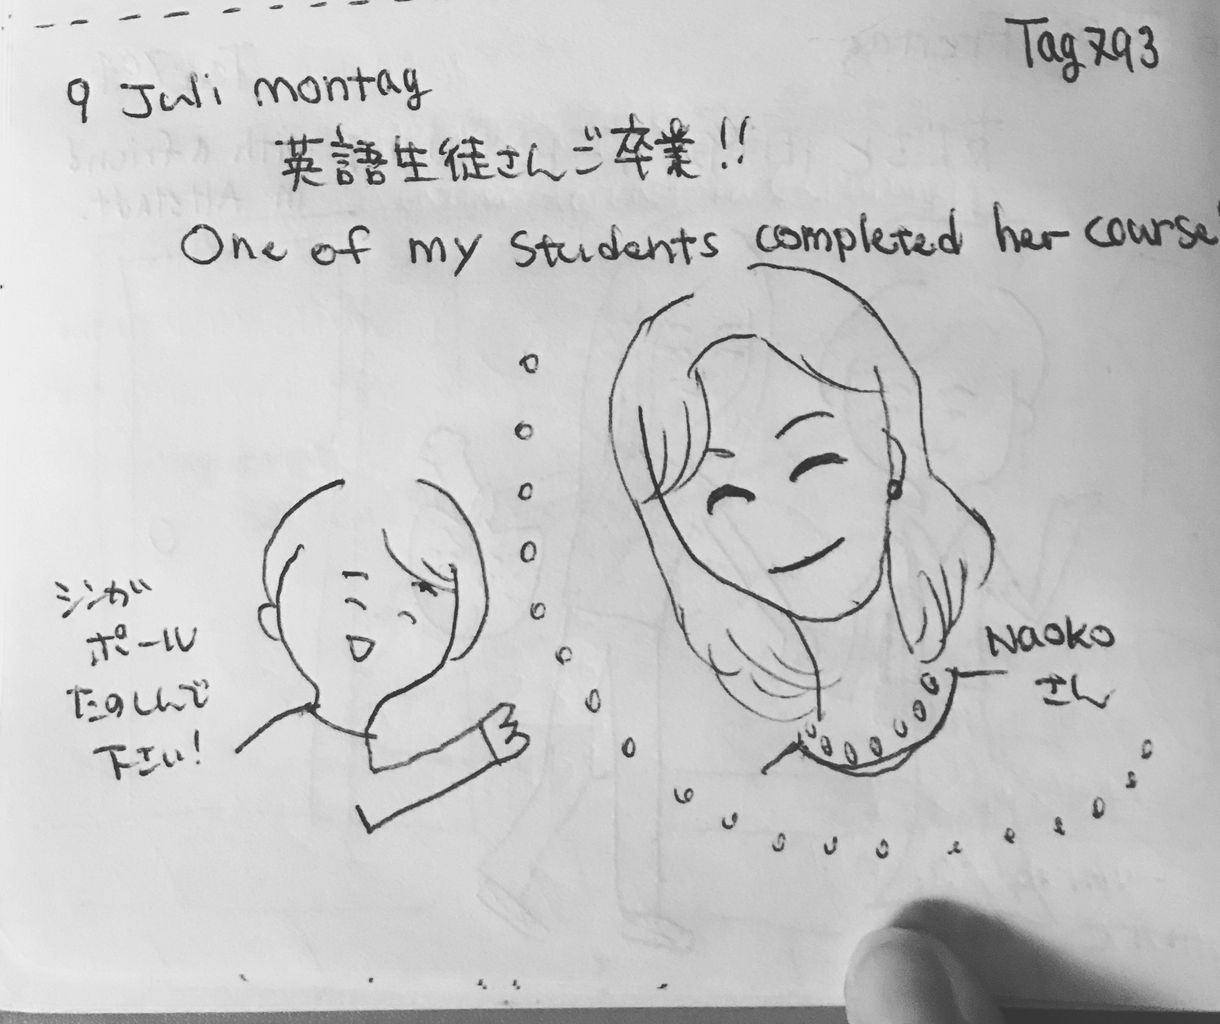 Tag 793
9 Juli montag
英語生徒さんご卒業!!
One of my students completed her course
シンガ
ポール
たのしんで
下さい!
Naoko
さん